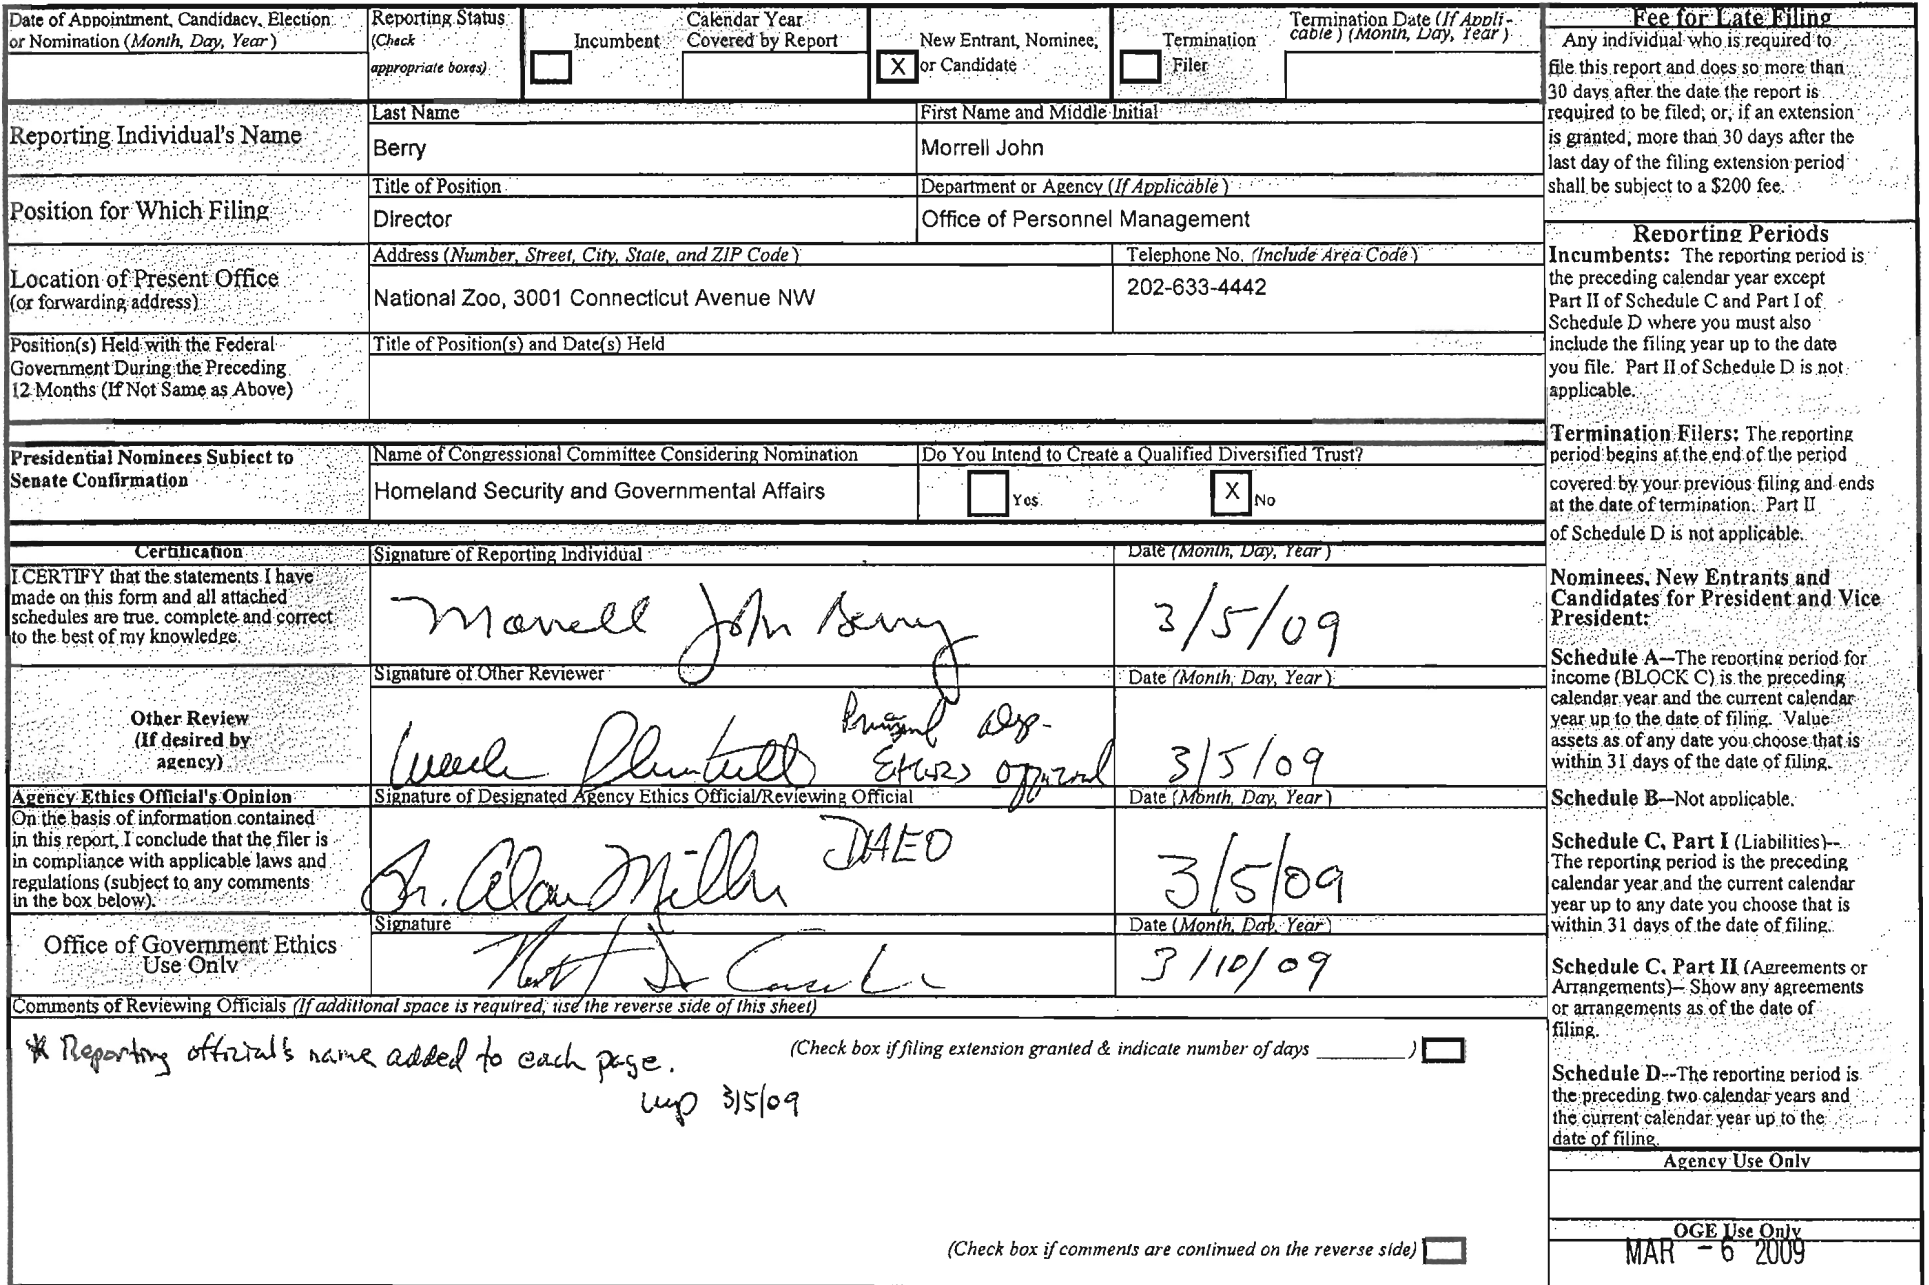 Date of Appointment, Candidacy, Election
or Nomination (Month, Day, Year)
Reporting Status
(Check
appropriate boxes)
Incumbent
Calendar Year
Covered by Report
X
New Entrant, Nominee,
or Candidate
Termination
Filer
Termination Date (If Appli-
cable) (Month, Day, Year)
Reporting Individual's Name
Last Name
Berry
First Name and Middle Initial
Morrell John
Position for Which Filing
Title of Position
Director
Department or Agency (If Applicable)
Office of Personnel Management
Location of Present Office
(or forwarding address)
Address (Number, Street, City, State, and ZIP Code)
National Zoo, 3001 Connecticut Avenue NW
Telephone No. (Include Area Code)
202-633-4442
Position(s) Held with the Federal
Government During the Preceding
12 Months (If Not Same as Above)
Title of Position(s) and Date(s) Held
Presidential Nominees Subject to
Senate Confirmation
Name of Congressional Committee Considering Nomination
Homeland Security and Governmental Affairs
Do You Intend to Create a Qualified Diversified Trust?
Yes
X No
Certification
I CERTIFY that the statements I have
made on this form and all attached
schedules are true, complete and correct
to the best of my knowledge.
Signature of Reporting Individual
Morrell John Berry
Date (Month, Day, Year)
3/5/09
Other Review
(If desired by
agency)
Signature of Other Reviewer
Ethics Official
Date (Month, Day, Year)
3/5/09
Agency Ethics Official's Opinion
On the basis of information contained
in this report, I conclude that the filer is
in compliance with applicable laws and
regulations (subject to any comments
in the box below).
Signature of Designated Agency Ethics Official/Reviewing Official
Alan Miller DAEO
Date (Month, Day, Year)
3/5/09
Office of Government Ethics
Use Only
Signature
Date (Month, Day, Year)
3/10/09
Comments of Reviewing Officials (If additional space is required, use the reverse side of this sheet)
* Reporting official's name added to each page.
3/5/09
(Check box if filing extension granted & indicate number of days ________)
(Check box if comments are continued on the reverse side)
Fee for Late Filing
Any individual who is required to
file this report and does so more than
30 days after the date the report is
required to be filed; or, if an extension
is granted, more than 30 days after the
last day of the filing extension period
shall be subject to a $200 fee.
Reporting Periods
Incumbents: The reporting period is
the preceding calendar year except
Part II of Schedule C and Part I of
Schedule D where you must also
include the filing year up to the date
you file. Part II of Schedule D is not
applicable.
Termination Filers: The reporting
period begins at the end of the period
covered by your previous filing and ends
at the date of termination. Part II
of Schedule D is not applicable.
Nominees, New Entrants and
Candidates for President and Vice
President:
Schedule A--The reporting period for
income (BLOCK C) is the preceding
calendar year and the current calendar
year up to the date of filing. Value
assets as of any date you choose that is
within 31 days of the date of filing.
Schedule B--Not applicable.
Schedule C, Part I (Liabilities)--
The reporting period is the preceding
calendar year and the current calendar
year up to any date you choose that is
within 31 days of the date of filing.
Schedule C, Part II (Agreements or
Arrangements)-- Show any agreements
or arrangements as of the date of
filing.
Schedule D--The reporting period is
the preceding two calendar years and
the current calendar year up to the
date of filing.
Agency Use Only
OGE Use Only
MAR - 6 2009